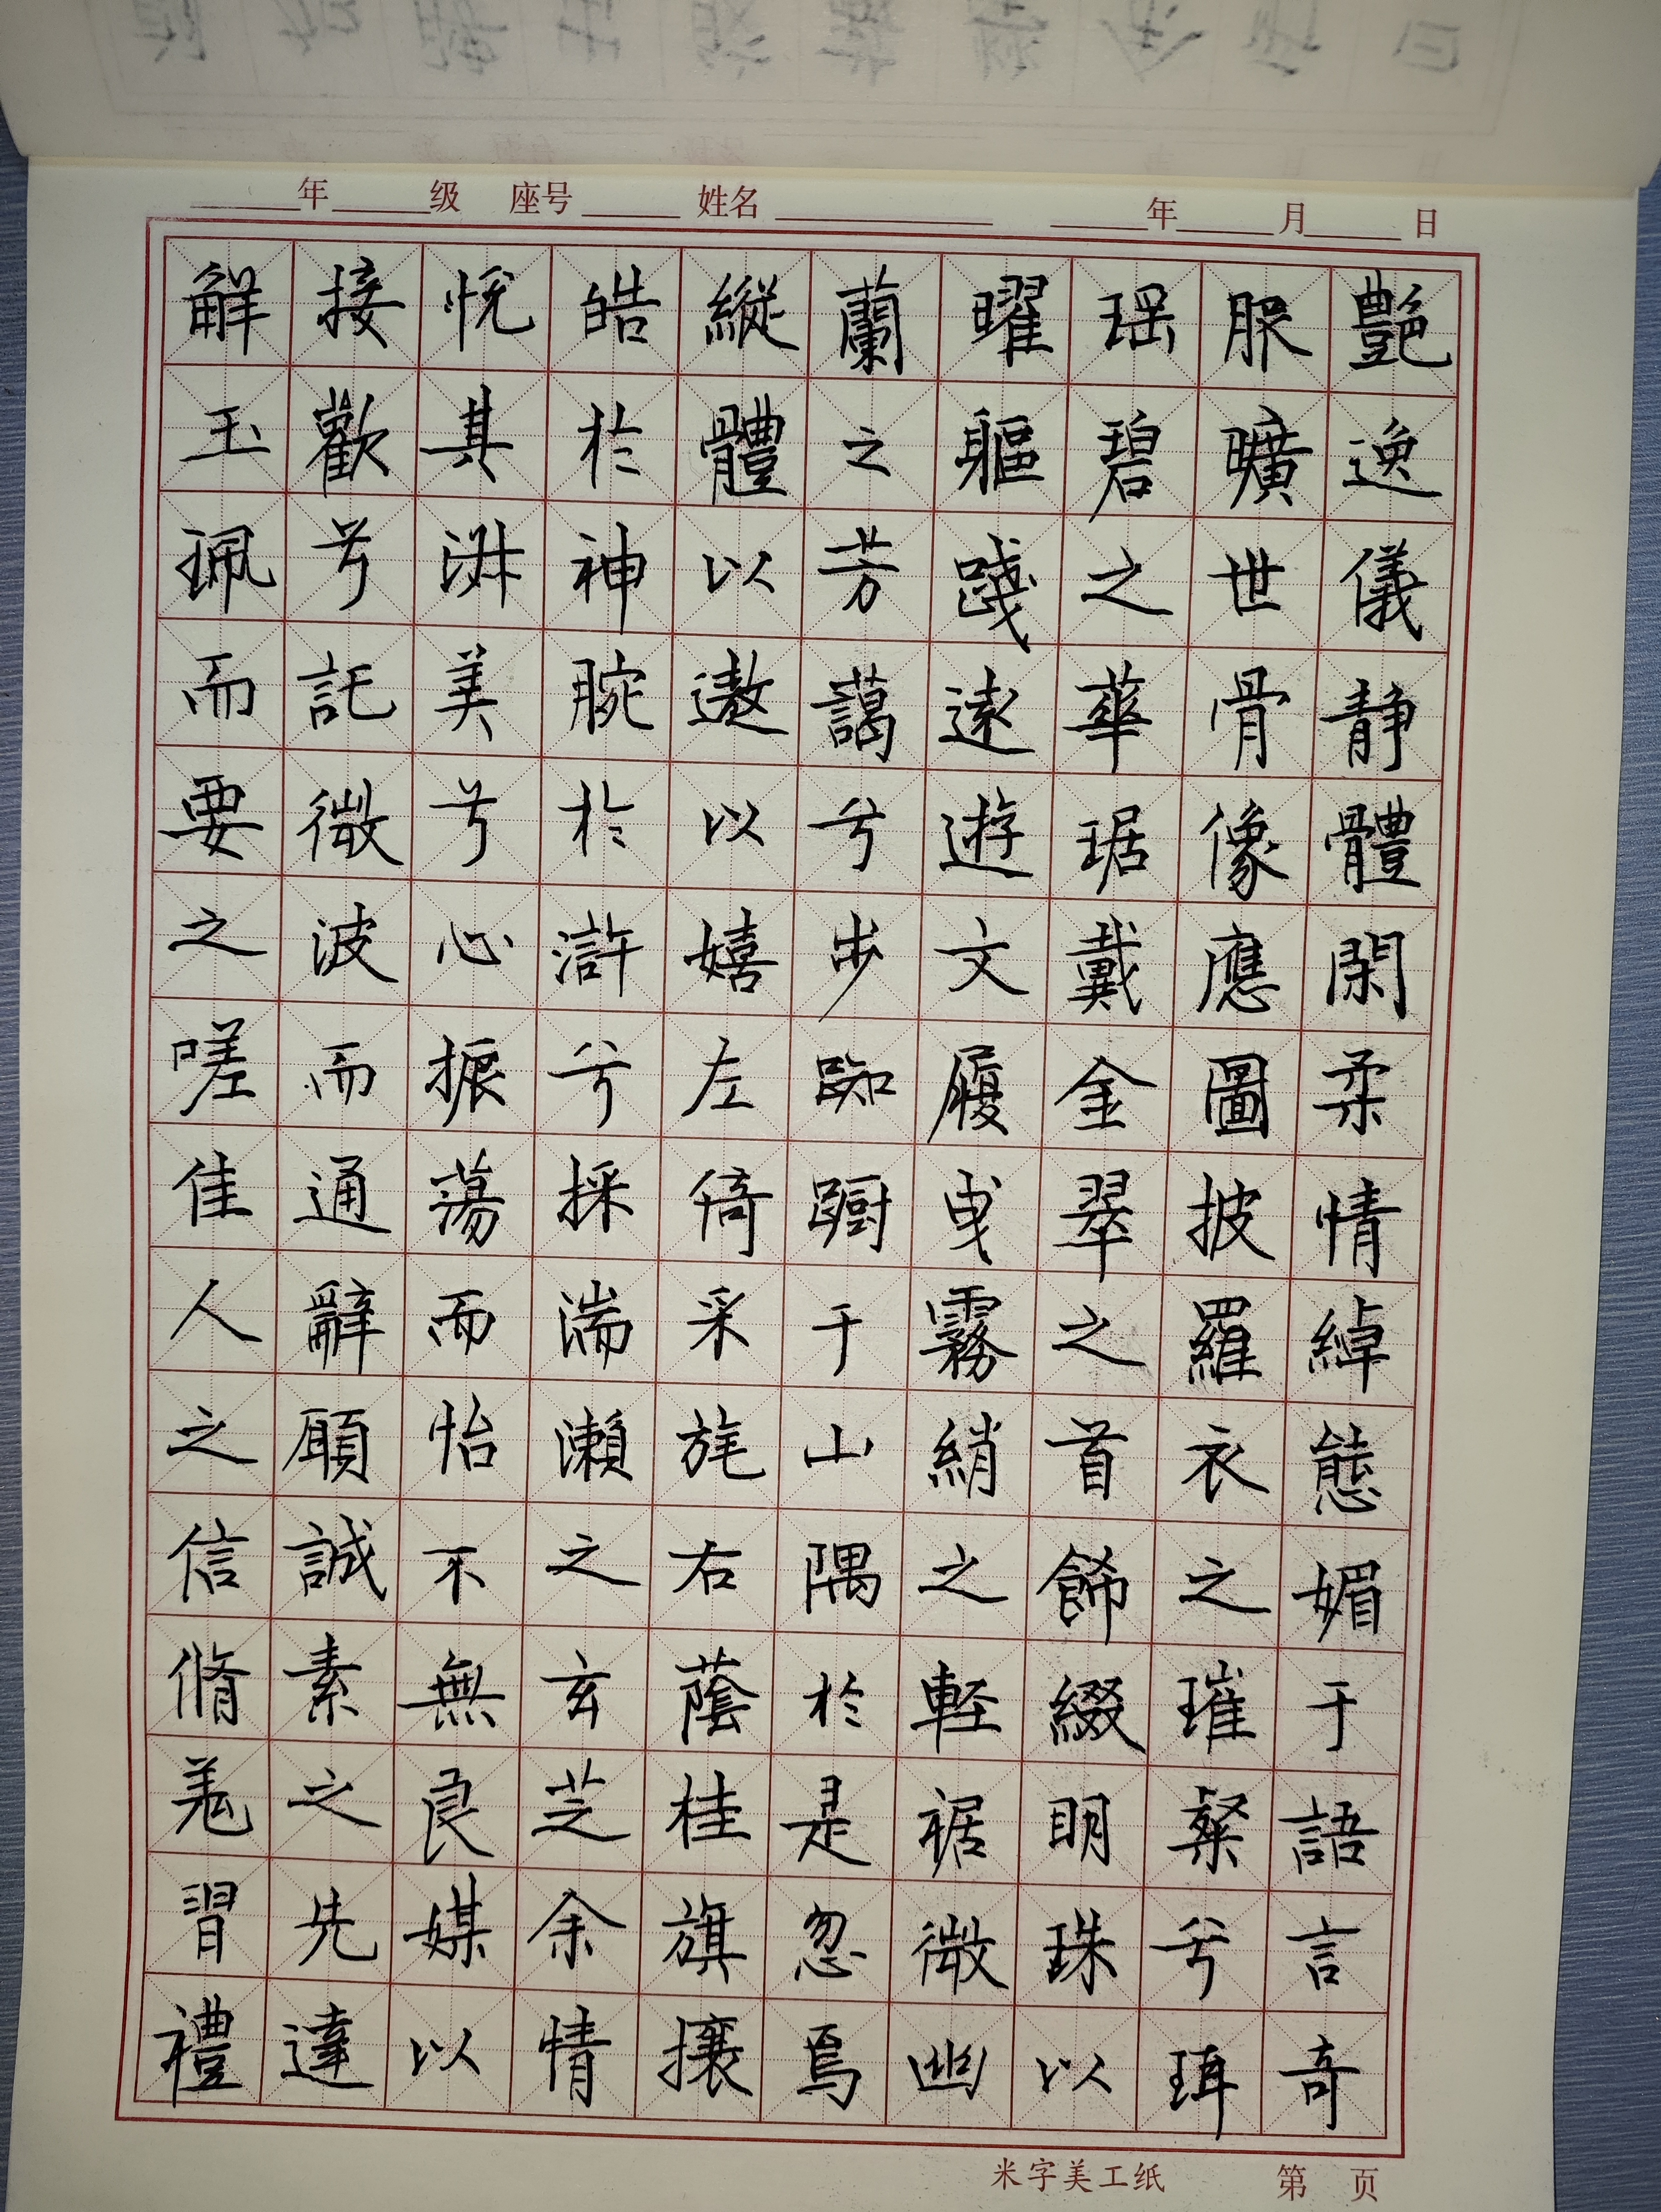 年 级 座号 姓名 年 月 日
艷逸儀静體閑柔情綽態媚于語言奇
服曠世骨像應圖披羅衣之璀粲兮珥
瑶碧之華琚戴金翠之首飾綴明珠以
曜軀踐遠遊文履曳霧綃之輕裾微幽
蘭之芳藹兮步踟蹰于山隅於是忽焉
縱體以遨以嬉左倚采旄右蔭桂旗攘
皓於神腕於滸兮採湍瀨之玄芝余情
悅其淋美兮心振蕩而怡不無良媒以
接歡兮託微波而通辭願誠素之先達
解玉珮而要之嗟佳人之信脩羌習禮
米字美工纸 第 页